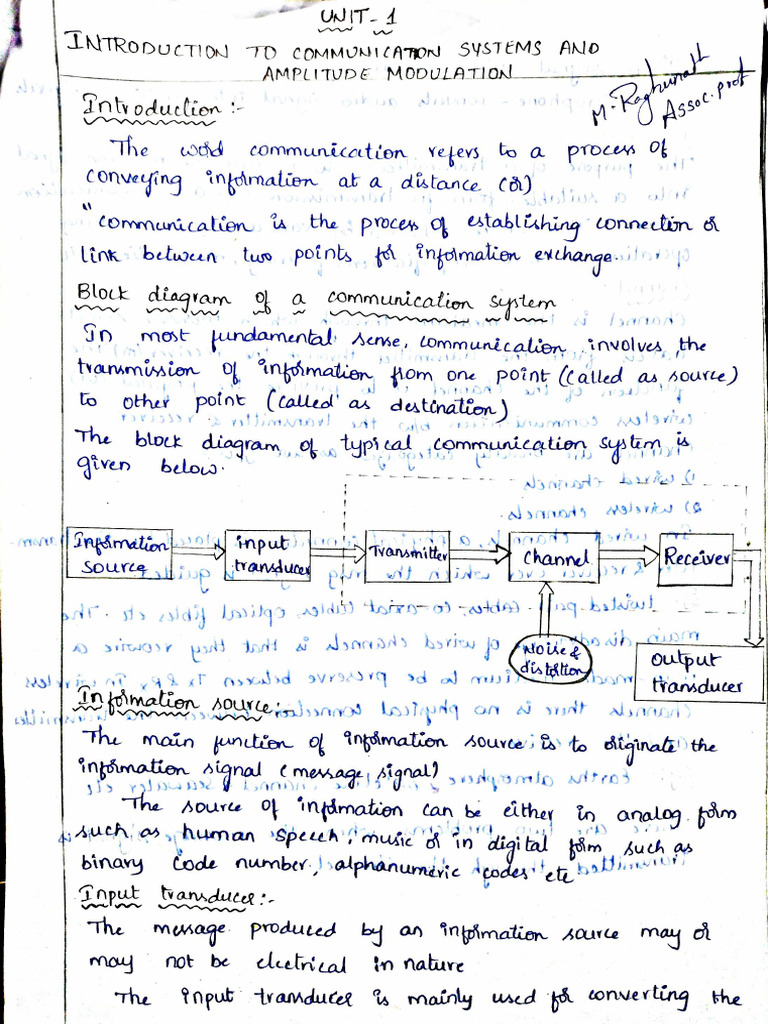 UNIT-1
INTRODUCTION TO COMMUNICATION SYSTEMS AND
AMPLITUDE MODULATION
M. Raghunath
Assoc. prof
Introduction :-
The word communication refers to a process of
conveying information at a distance (or)
"communication is the process of establishing connection or
link between two points for information exchange.
Block diagram of a communication system
In most fundamental sense, communication involves the
transmission of information from one point (called as source)
to other point (called as destination)
The block diagram of typical communication system is
given below.
Information source
input transducer
Transmitter
channel
Receiver
Noise & distortion
output transducer
Information source:-
The main function of information source is to originate the
information signal (message signal)
The source of information can be either in analog form
such as human speech, music or in digital form such as
binary code number, alphanumeric codes etc
Input transducer:-
The message produced by an information source may or
may not be electrical in nature
The input transducer is mainly used for converting the